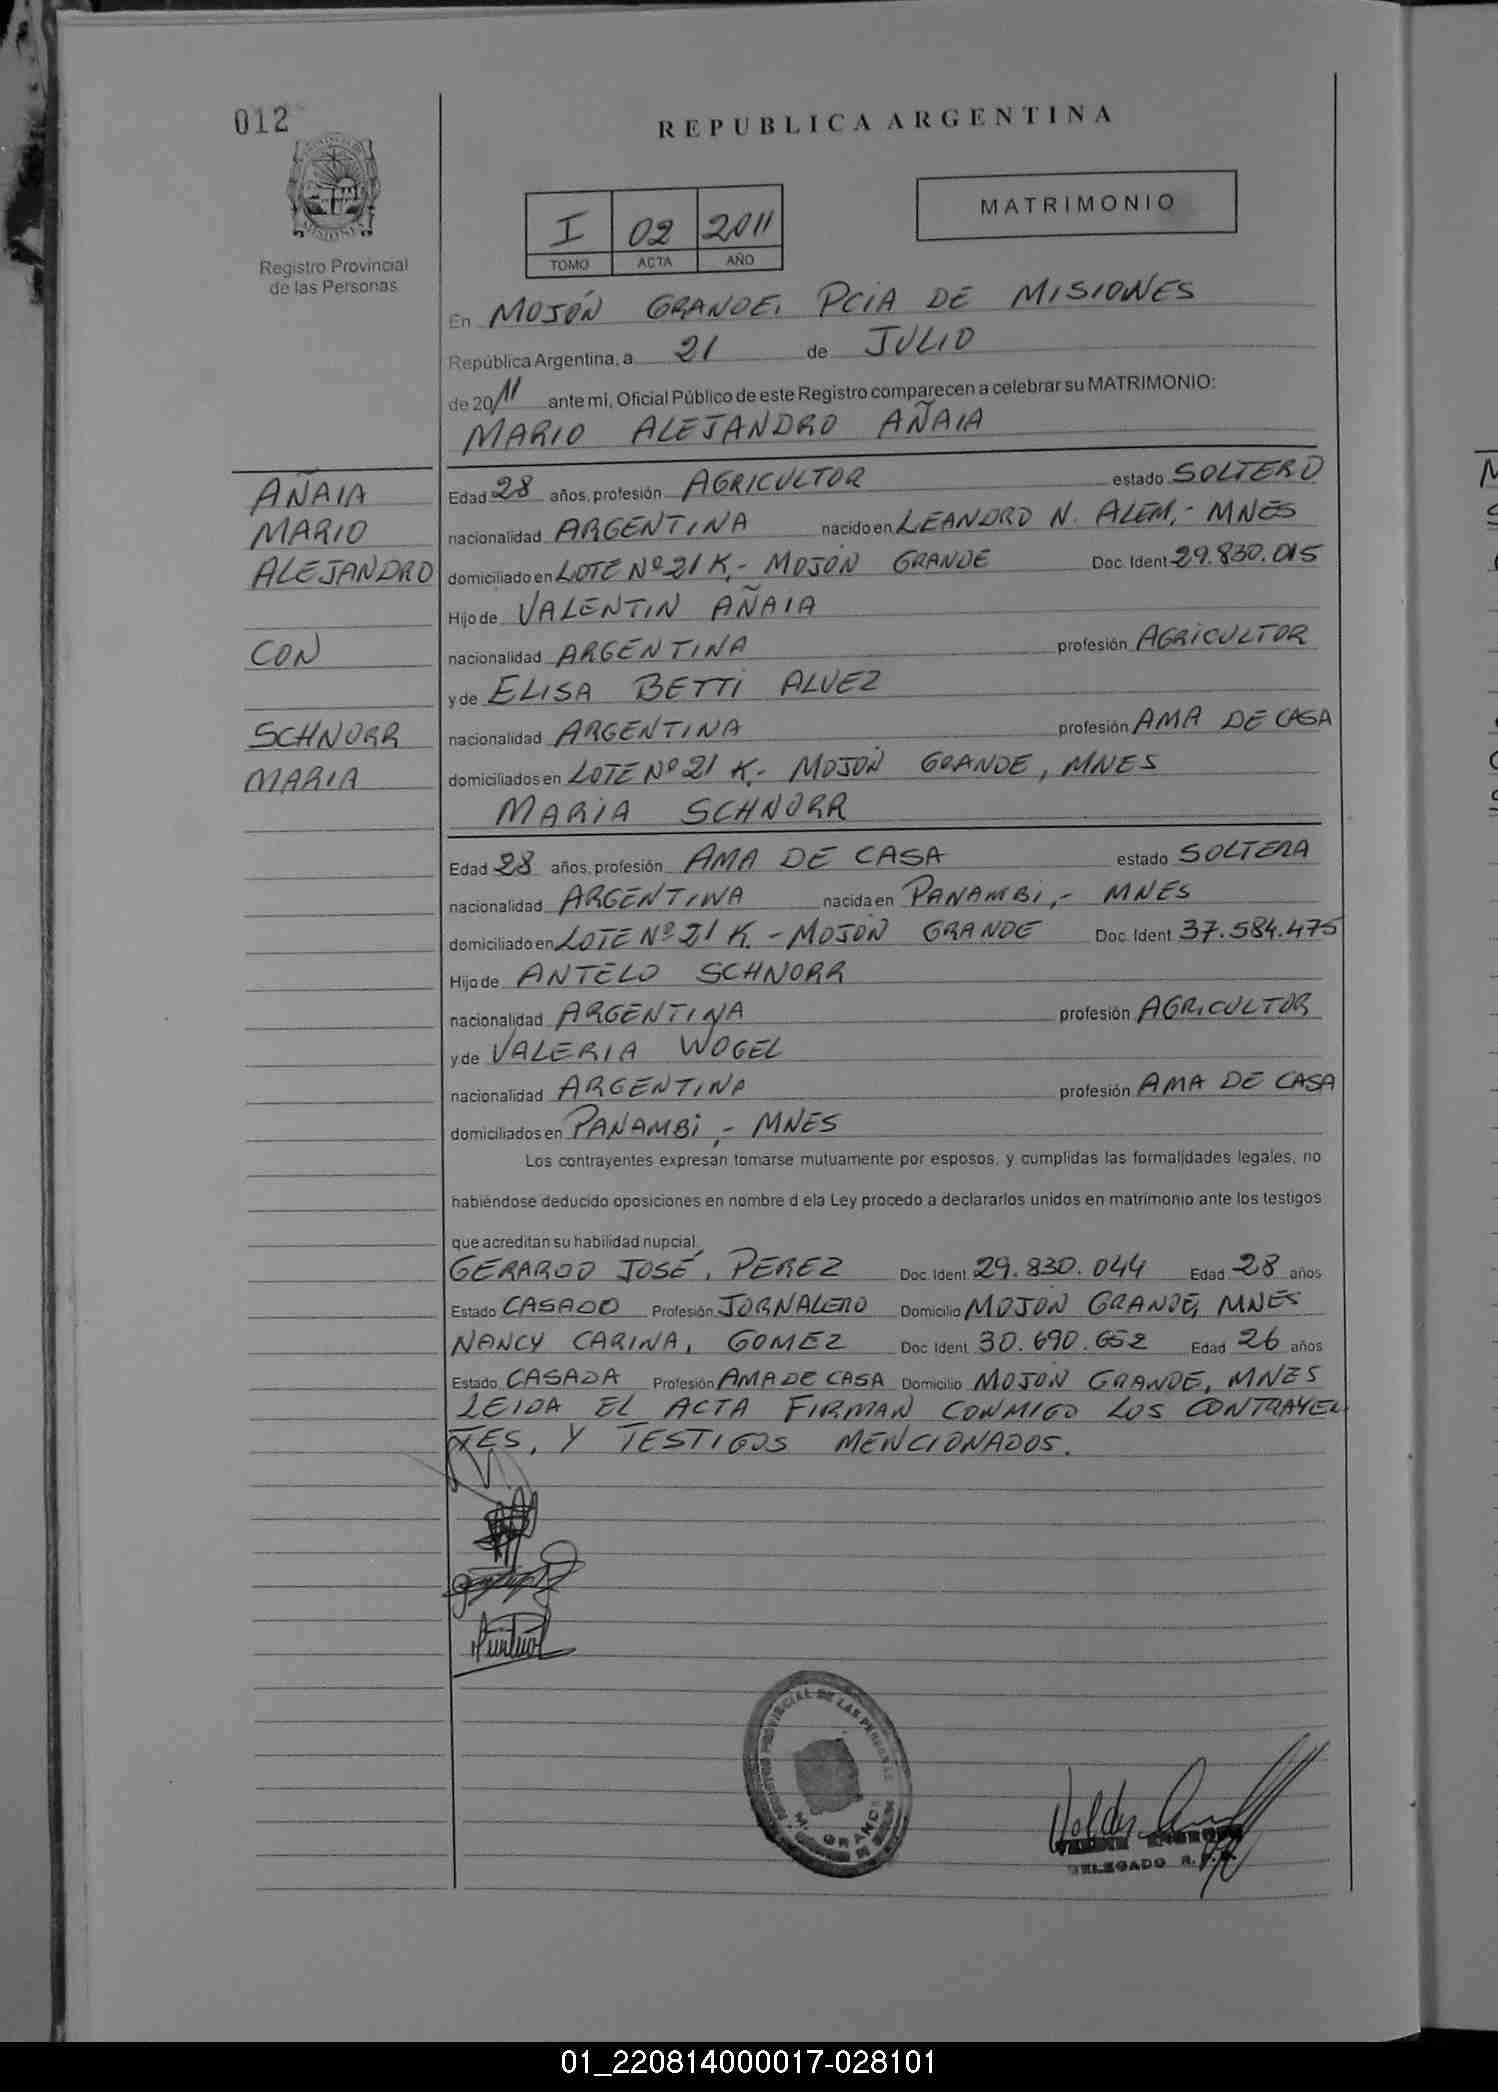 012
REPUBLICA ARGENTINA
MATRIMONIO
I 02 2011
TOMO ACTA AÑO
Registro Provincial
de las Personas
En MOJÓN GRANDE, PCIA DE MISIONES
República Argentina, a 21 de JULIO
de 2011 ante mi, Oficial Público de este Registro comparecen a celebrar su MATRIMONIO:
MARIO ALEJANDRO AÑAIA
AÑAIA
MARIO
ALEJANDRO
CON
SCHNORR
MARIA
Edad 28 años, profesión AGRICULTOR estado SOLTERO
nacionalidad ARGENTINA nacido en LEANDRO N. ALEM,- MNES
domiciliado en LOTE Nº 21 K,- MOJÓN GRANDE Doc. Ident 29.830.015
Hijo de VALENTIN AÑAIA
nacionalidad ARGENTINA profesión AGRICULTOR
y de ELISA BETTI ALVEZ
nacionalidad ARGENTINA profesión AMA DE CASA
domiciliados en LOTE Nº 21 K,- MOJÓN GRANDE, MNES
MARIA SCHNORR
Edad 28 años, profesión AMA DE CASA estado SOLTERA
nacionalidad ARGENTINA nacida en PANAMBI,- MNES
domiciliado en LOTE Nº 21 K. - MOJÓN GRANDE Doc. Ident 37.584.475
Hija de ANTELO SCHNORR
nacionalidad ARGENTINA profesión AGRICULTOR
y de VALERIA WOGEL
nacionalidad ARGENTINA profesión AMA DE CASA
domiciliados en PANAMBI,- MNES
Los contrayentes expresan tomarse mutuamente por esposos, y cumplidas las formalidades legales, no
habiéndose deducido oposiciones en nombre d ela Ley procedo a declararlos unidos en matrimonio ante los testigos
que acreditan su habilidad nupcial.
GERARDO JOSÉ, PEREZ Doc. Ident. 29.830.044 Edad 28 años
Estado CASADO Profesión JORNALERO Domicilio MOJÓN GRANDE, MNES
NANCY CARINA, GOMEZ Doc. Ident. 30.690.652 Edad 26 años
Estado CASADA Profesión AMA DE CASA Domicilio MOJÓN GRANDE, MNES
LEIDA EL ACTA FIRMAN CONMIGO LOS CONTRAYEN
TES, Y TESTIGOS MENCIONADOS.
PROVINCIAL DE LAS PERSONAS
M. GRANDE
DELEGADO R.P.P.
01_220814000017-028101